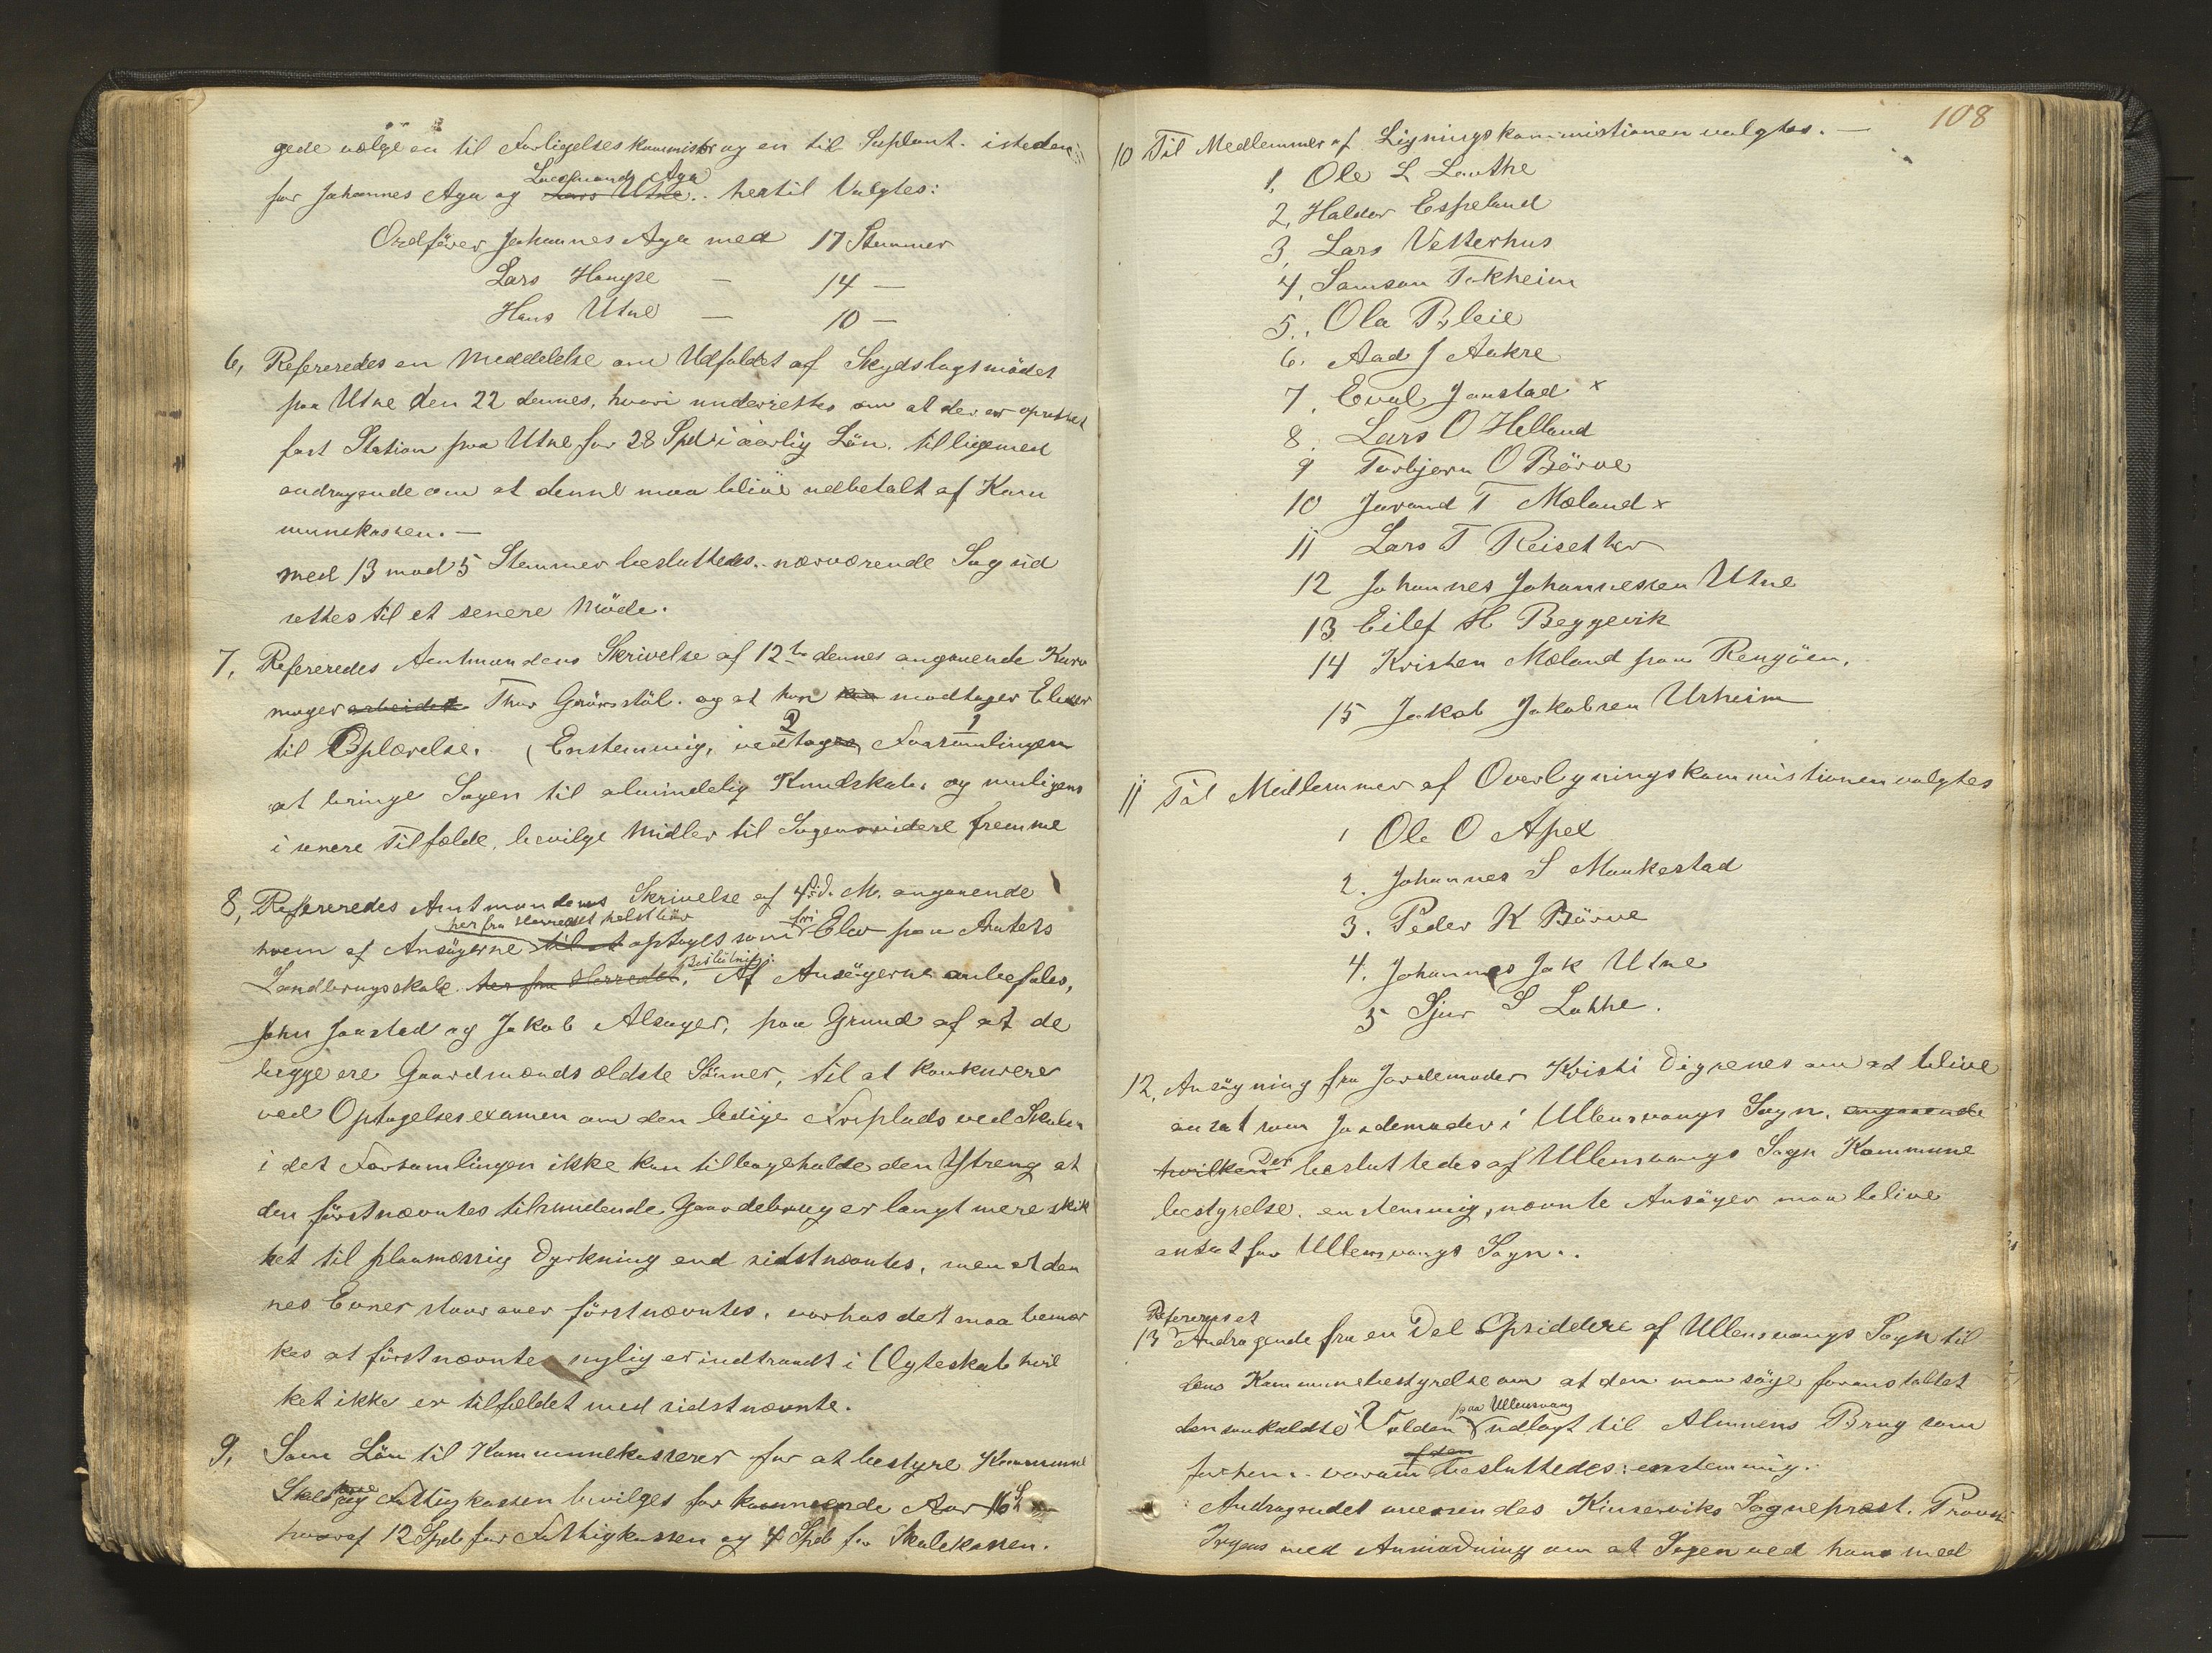 gede vælge en til Forligelseskommisær og en til Suplant. isteden
for Johannes Aga og Lars Utne.. hertil Valgtes:
Lensmand Aga
Ordförer Johannes Aga med 17 Stemmer
Lars Hauge — 14 —
Hans Utne — 10 —
6, Refereredes en Meddelelse om Udfaldet af Skydslagsmödet
paa Utne den 22 dennes, hvori underrettes om at der er oprettet
fast Station paa Utne for 28 Spd i aarlig Lön. tilligemed
andragende om at denne maa blive udbetalt af Kom
munekassen. —
med 13 mod 5 Stemmer besluttedes. nærværende Sag ud
settes til et senere Möde.
7, Refereredes Amtmandens Skrivelse af 12te dennes angaaende Kurv
mager arbeidet Thor Grönsstöl. og at han kan modtager Elever
til Oplærelse. (Enstemmig, vedtager Forsamlingen
2 1
at bringe Sagen til almindelig Kundskab. og muligens
i senere Tilfælde, bevilge Midler til Sagens videre fremme
8, Refereredes Amtmandens Skrivelse af 4de d. M. angaaende
her fra Herredet helst bör
hvem af Ansögerne til at optages som fri Elev paa Amtets
Landbrugsskole. her fra Herredet. Beslutning: Af Ansögerne anbefales,
John Jaastad og Jakob Alsager, paa Grund af at de
begge ere Gaardmænds ældste Sönner, til at konkurere
ved Optagelsesexamen om den ledige Friplads ved Skolen
i det Forsamlingen ikke kan tilbageholde den Ytreng at
den förstnævntes tilhændende Gaardebrug er langt mere skik
ket til planmæssig Dyrkning end sidstnævntes, men at den
nes Evner staar over förstnævntes. vorhos det maa bemær
kes at förstnævnte nylig er indtraadt i Ægteskab hvil
ket ikke er tilfældet med sidstnævnte.
9, Som Lön til Kommunekasserer for at bestyre Kommune
Skole og Fattigkassen bevilges for kommende Aar 16 Sp
hvoraf 12 Spd for Fattigkassen og 4 Spd for Skolekassen.
108
10 Til Medlemmer af Ligningskommistionen valgtes. —
1, Ole L Lauthe
2, Haldor Espeland
3, Lars Vetterhus
4, Samson Tokheim
5., Ola Bleie
6. Aad J Aakre
7, Eval Jaastad x
8, Lars O Helland
9 Torbjørn O Börve
10 Jarand T Mæland x
11 Lars T Reisether
12 Johannes Johannessen Utne
13 Eilef H Beggevik
14 Kristen Mæland paa Rengöen.
15 Jakob Jakobsen Urheim
11 Til Medlemmer af Overligningskommistionen valgtes
1 Ole O Apel
2. Johannes S Maakestad
3. Peder K Börve
4. Johannes Jak Utne
5 Sjur S Lothe.
12, Ansögning fra Jordemoder Kristi Digrenes om at blive
ansat som Jordemoder i Ullensvangs Sogn. angaaende
hvilken Der besluttedes af Ullensvangs Sogn Kommune
bestyrelse. enstemmig, nævnte Ansöger maa blive
ansat for Ullensvangs Sogn..
Refereredes et
13 Andragende fra en Del Opsiddere af Ullensvangs Sogn til
dens Kommunebestyrelse om at den maa söge foranstaltet
den saakaldte Volden paa Ullensvang udlagt til Almuens Brug som
forhen.. vorom besluttedes: enstemmig.
Andragendet oversendes Kinserviks Sogneprest. Provst
Irgens med Anmodning om at Sagen ved hans med